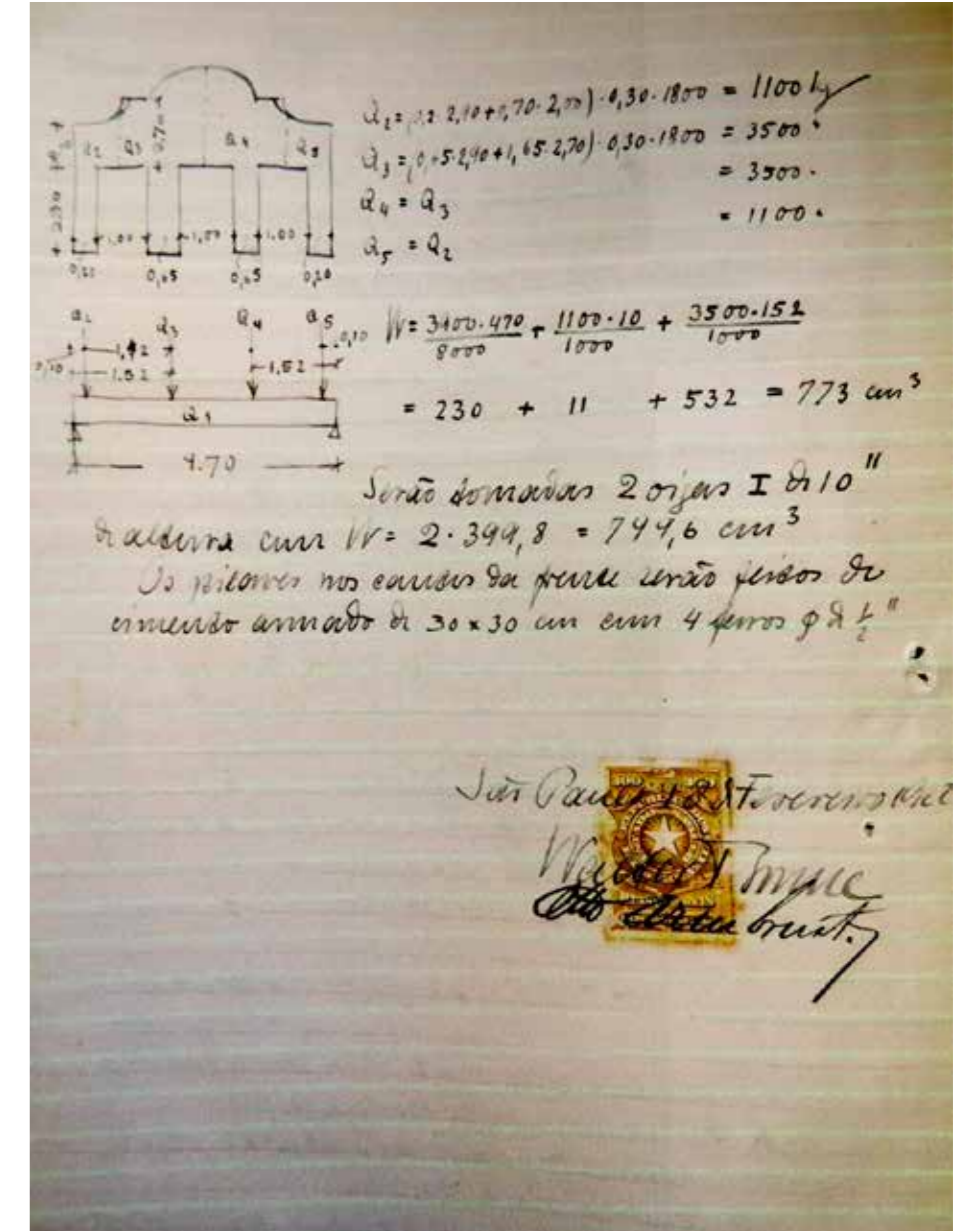 Q₂ = (0,2·2,90+0,70·2,00)·0,30·1800 = 1100 kg
Q₃ = (0,45·2,90+1,65·2,70)·0,30·1800 = 3500 "
Q₄ = Q₃ = 3500 "
Q₅ = Q₂ = 1100 "
Q₂ Q₃ Q₄ Q₅
0,70
2,30
1,00 1,00 1,00
0,20 0,45 0,45 0,20
Q₂ Q₃ Q₄ Q₅
0,10 1,42 0,10
1,52 1,52
Q₁
4.70
W = 3900·470/8000 + 1100·10/1000 + 3500·152/1000
= 230 + 11 + 532 = 773 cm³
Serão tomadas 2 vigas I de 10"
de altura com W = 2·399,8 = 744,6 cm³
Os pilares nos cantos da frente serão feitos de
cimento armado de 30 x 30 cm com 4 ferros φ de ½"
São Paulo 18 de Fevereiro
Otto